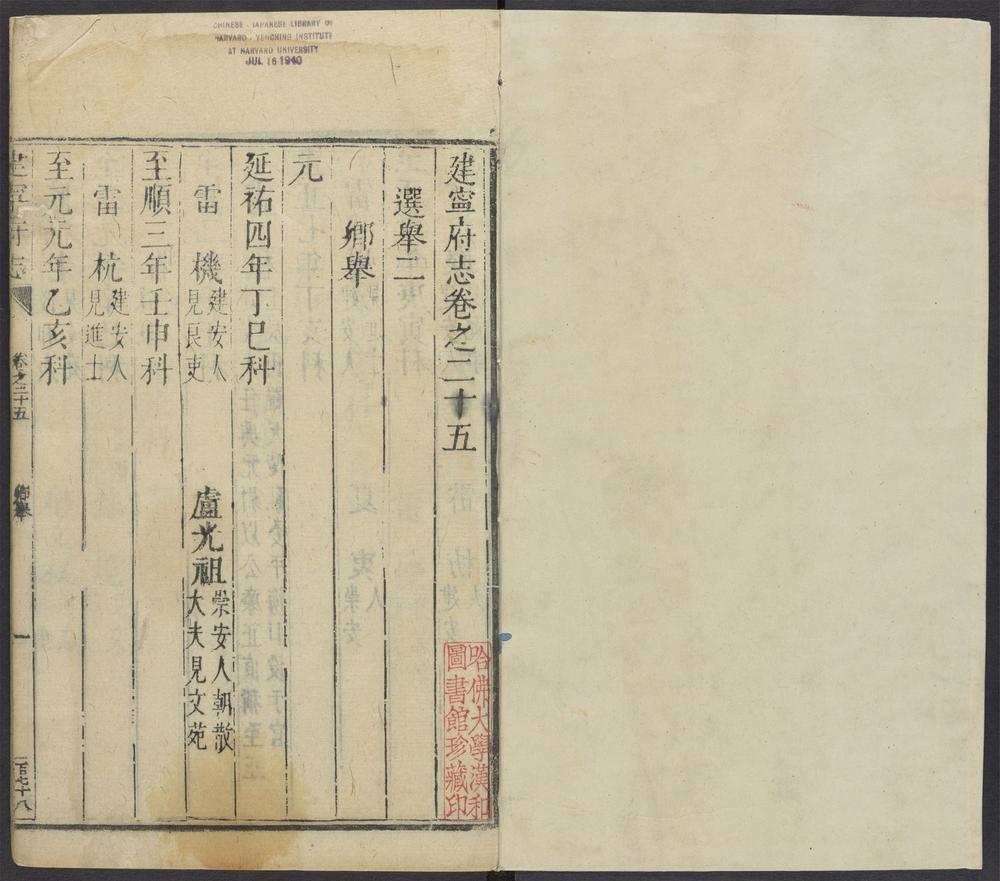 CHINESE - JAPANESE LIBRARY OF
HARVARD - YENCHING INSTITUTE
AT HARVARD UNIVERSITY
JUL 16 1940
建寧府志卷之二十五
選舉二
鄉舉
元
延祐四年丁巳科
雷機 建安人 見良吏
盧光祖 崇安人朝散 大夫見文苑
至順三年壬申科
雷杭 建安人 見進士
至元元年乙亥科
建寧府志
卷之二十五
鄉舉
一
一百七十八
哈佛大學漢和
圖書館珍藏印